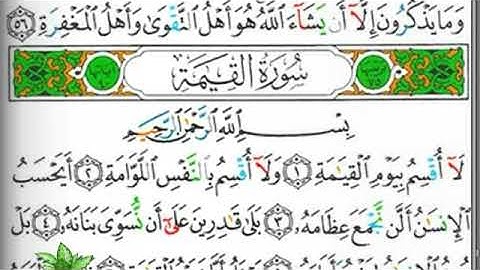 وَمَا يَذْكُرُونَ إِلَّآ أَن يَشَآءَ ٱللَّهُ هُوَ أَهْلُ ٱلتَّقْوَىٰ وَأَهْلُ ٱلْمَغْفِرَةِ ٥٦
سُورَةُ ٱلْقِيَٰمَةِ
بِسْمِ ٱللَّهِ ٱلرَّحْمَٰنِ ٱلرَّحِيمِ
لَآ أُقْسِمُ بِيَوْمِ ٱلْقِيَٰمَةِ ١ وَلَآ أُقْسِمُ بِٱلنَّفْسِ ٱللَّوَّامَةِ ٢ أَيَحْسَبُ
ٱلْإِنسَٰنُ أَلَّن نَّجْمَعَ عِظَامَهُۥ ٣ بَلَىٰ قَٰدِرِينَ عَلَىٰٓ أَن نُّسَوِّىَ بَنَانَهُۥ ٤ بَلْ